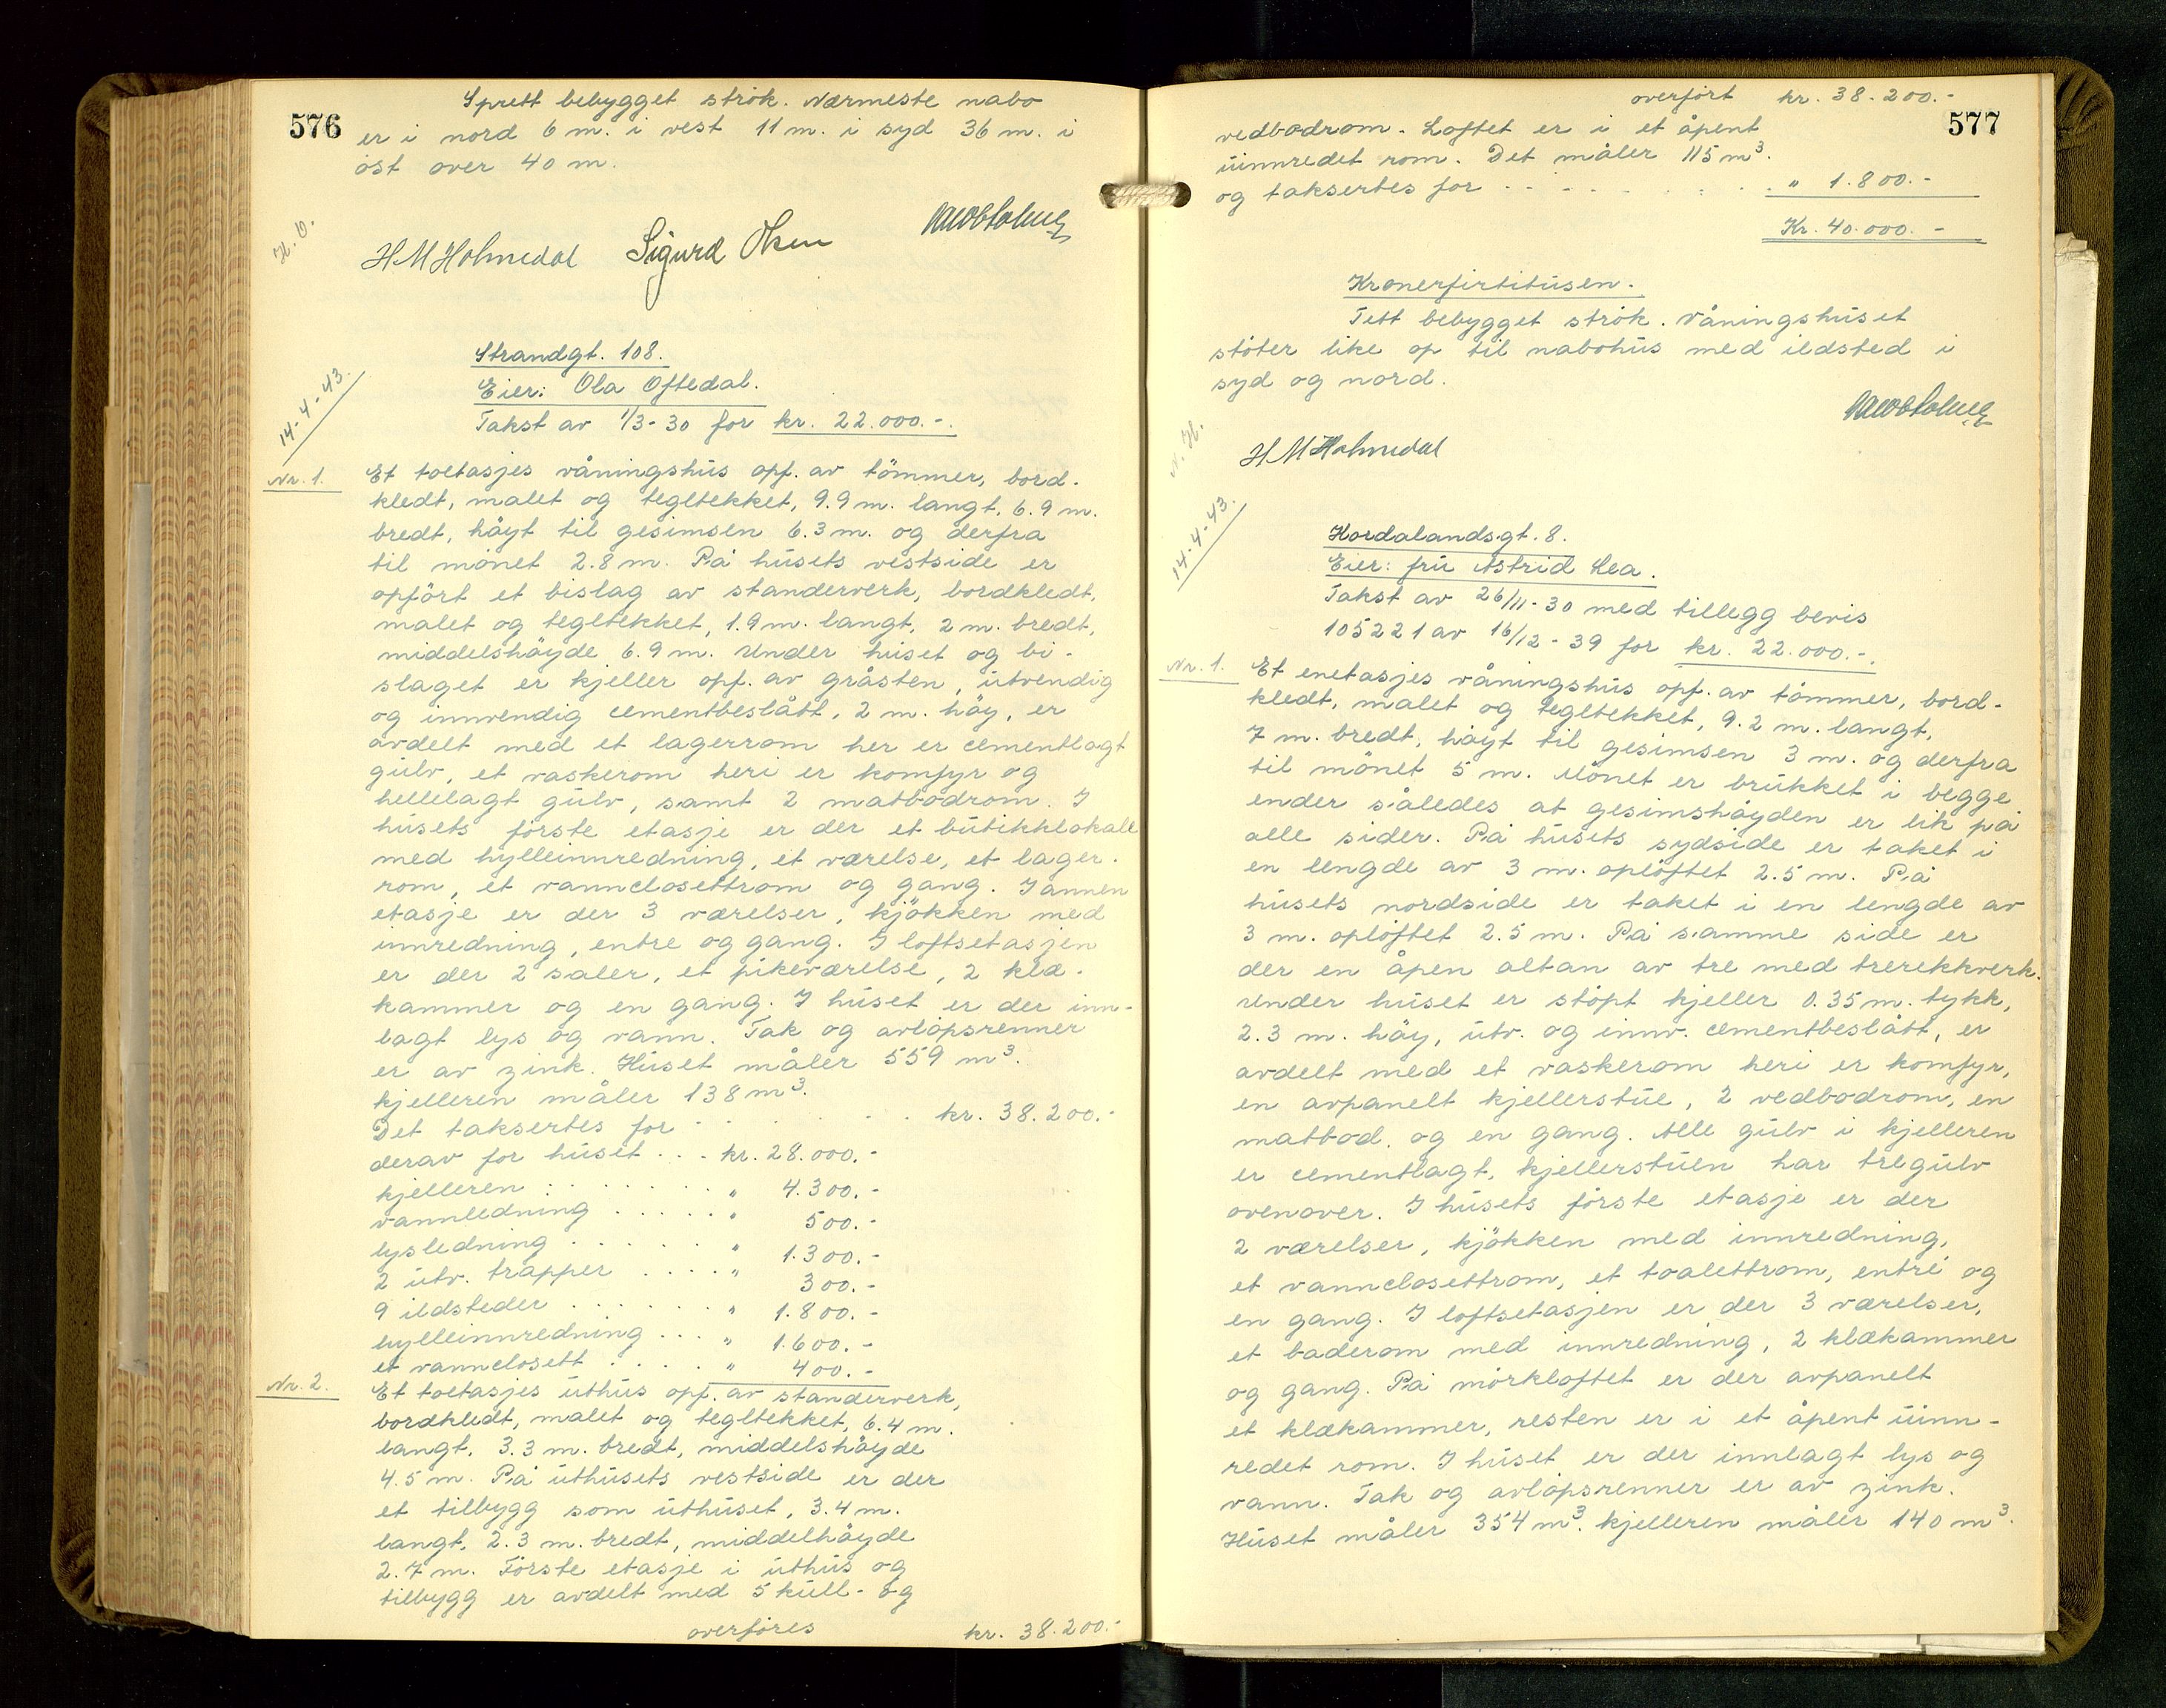 576
Sprett bebygget strök. Nærmeste nabo
er i nord 6 m. i vest 11 m. i syd 36 m. i
öst over 40 m.
HMHolmedal Sigurd
Strandgt. 108.
Eier: Ola Oftedal.
14-4-43.
Takst av 1/3-30 for kr. 22.000.-.
Nr. 1. Et toetasjes våningshus opf. av tömmer, bord-
kledt, malet og tegltekket, 9.9 m. langt, 6.9 m.
bredt, höyt til gesimsen 6.3 m. og derfra
til mönet 2.8 m. På husets vestside er
opfört et bislag av standerverk, bordkledt,
malet og tegltekket, 1.9 m. langt, 2 m. bredt,
middelshöyde 6.9 m. Under huset og bi-
slaget er kjeller opf. av gråsten, utvendig
og innvendig cementbeslått, 2 m. höy, er
avdelt med et lagerrom her er cementlagt
gulv, et vaskerom heri er komfyr og
hellelagt gulv, samt 2 matbodrom. I
husets förste etasje er der et butikklokale
med hylleinnredning, et værelse, et lager-
rom, et vannclosettrom og gang. I annen
etasje er der 3 værelser, kjökken med
innredning, entre og gang. I loftsetasjen
er der 2 saler, et pikeværelse, 2 klæ-
kammer og en gang. I huset er der inn-
lagt lys og vann. Tak og avlöpsrenner
er av zink. Huset måler 559 m³.
kjelleren måler 138 m³.
Det taksertes for . . . . . kr. 38.200.-
derav for huset . . . kr. 28.000.-
kjelleren . . . . . . . " 4.300.-
vannledning . . . . . " 500.-
lysledning . . . . . . " 1.300.-
2 utv. trapper . . . . " 300.-
9 ildsteder . . . . . . " 1.800.-
hylleinnredning . . . " 1.600.-
et vannclosett . . . . " 400.-
Nr. 2. Et toetasjes uthus opf. av standerverk,
bordkledt, malet og tegltekket, 6.4 m.
langt, 3.3 m. bredt, middelshöyde
4.5 m. På uthusets vestside er der
et tilbygg som uthuset, 3.4 m.
langt, 2.3 m. bredt, middelhöyde
2.7 m. Förste etasje i uthus og
tilbygg er avdelt med 5 kull- og
overföres kr. 38.200.-
577
overfört kr. 38.200.-
vedbodrom. Loftet er i et åpent
uinnredet rom. Det måler 115 m³.
og taksertes for . . . . . . . . " 1.800.-
Kr. 40.000.-
Kronerfirtitusen.
Tett bebygget strök. Våningshuset
stöter like op til nabohus med ildsted i
syd og nord.
HMHolmedal
14-4-43.
Hordalandsgt. 8.
Eier: fru Astrid Lea.
Takst av 26/11-30 med tillegg bevis
105221 av 16/12-39 for kr. 22.000.-.
Nr. 1. Et enetasjes våningshus opf. av tömmer, bord-
kledt, malet og tegltekket, 9.2 m. langt,
7 m. bredt, höyt til gesimsen 3 m. og derfra
til mönet 5 m. Mönet er brukket i begge
ender således at gesimshöyden er lik på
alle sider. På husets sydside er taket i
en lengde av 3 m. oplöftet 2.5 m. På
husets nordside er taket i en lengde av
3 m. oplöftet 2.5 m. På samme side er
der en åpen altan av tre med trerekkverk.
Under huset er stöpt kjeller 0.35 m. tykk,
2.3 m. höy, utv. og innv. cementbeslått, er
avdelt med et vaskerom heri er komfyr,
en avpanelt kjellerstue, 2 vedbodrom, en
matbod. og en gang. Alle gulv i kjelleren
er cementlagt, kjellerstuen har tregulv
ovenover. I husets förste etasje er der
2 værelser, kjökken med innredning,
et vannclosettrom, et toalettrom, entré og
en gang. I loftsetasjen er der 3 værelser,
et baderom med innredning, 2 klækammer
og gang. På mörkloftet er der avpanelt
et klækammer, resten er i et åpent uinn-
redet rom. I huset er der innlagt lys og
vann. Tak og avlöpsrenner er av zink.
Huset måler 354 m³. kjelleren måler 140 m³.